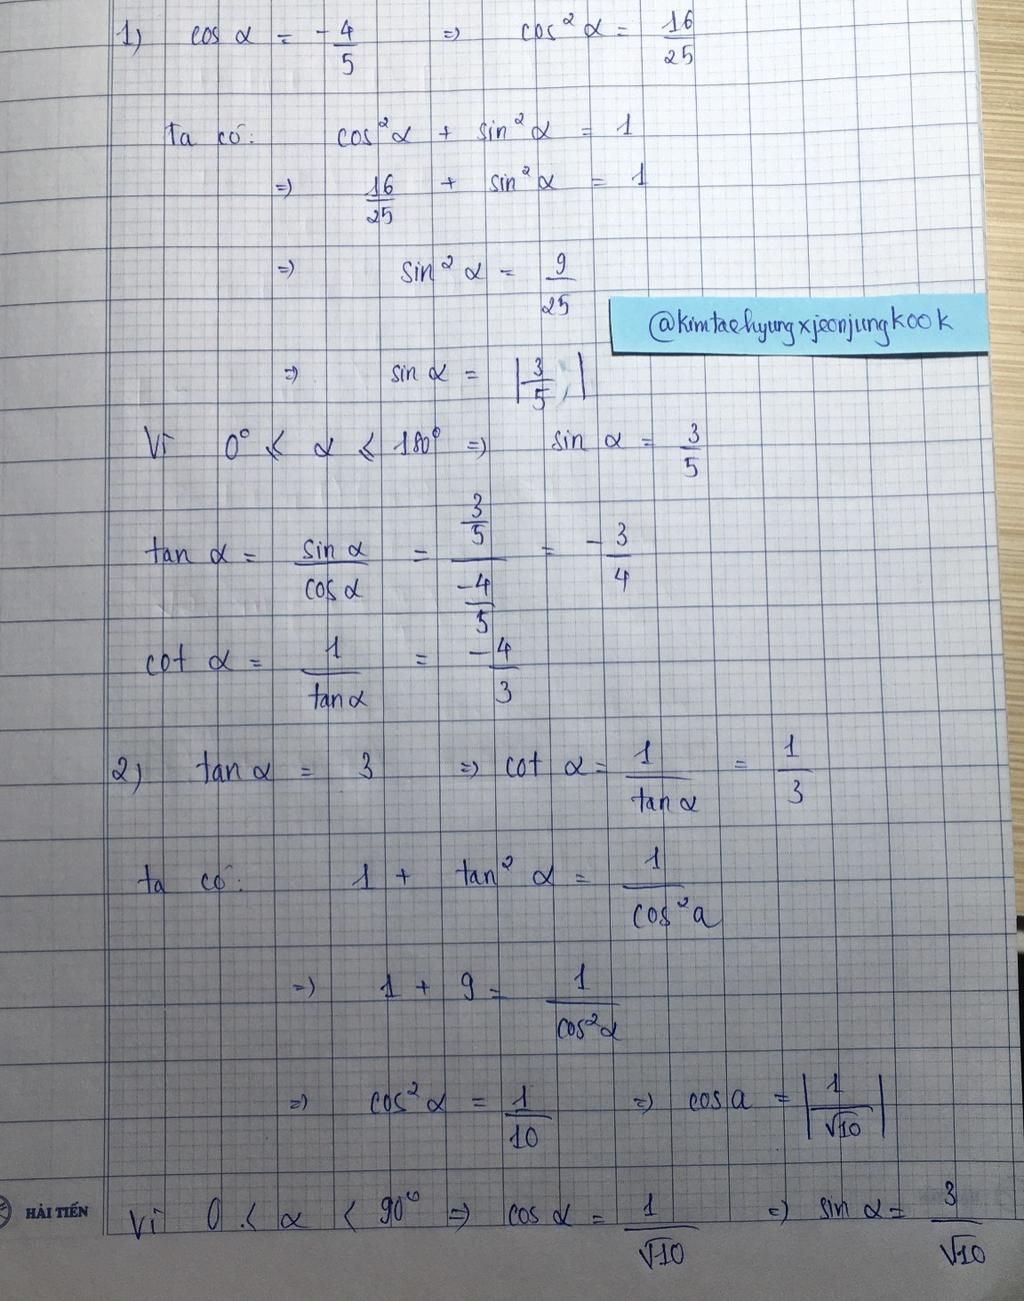 1) cos α = -4/5 => cos² α = 16/25
Ta có: cos²α + sin²α = 1
=> 16/25 + sin²α = 1
=> sin² α = 9/25
@kimtaehyungxjeonjungkook
=> sin α = |3/5|
Vì 0° ≤ α ≤ 180° => sin α = 3/5
tan α = sin α/cos α = (3/5)/(-4/5) = -3/4
cot α = 1/tan α = -4/3
2) tan α = 3 => cot α = 1/tan α = 1/3
ta có: 1 + tan² α = 1/cos²a
=> 1 + 9 = 1/cos²α
=> cos² α = 1/10 => cos a = |1/√10|
Vì 0 < α < 90° => cos α = 1/√10 => sin α = 3/√10
HẢI TIẾN